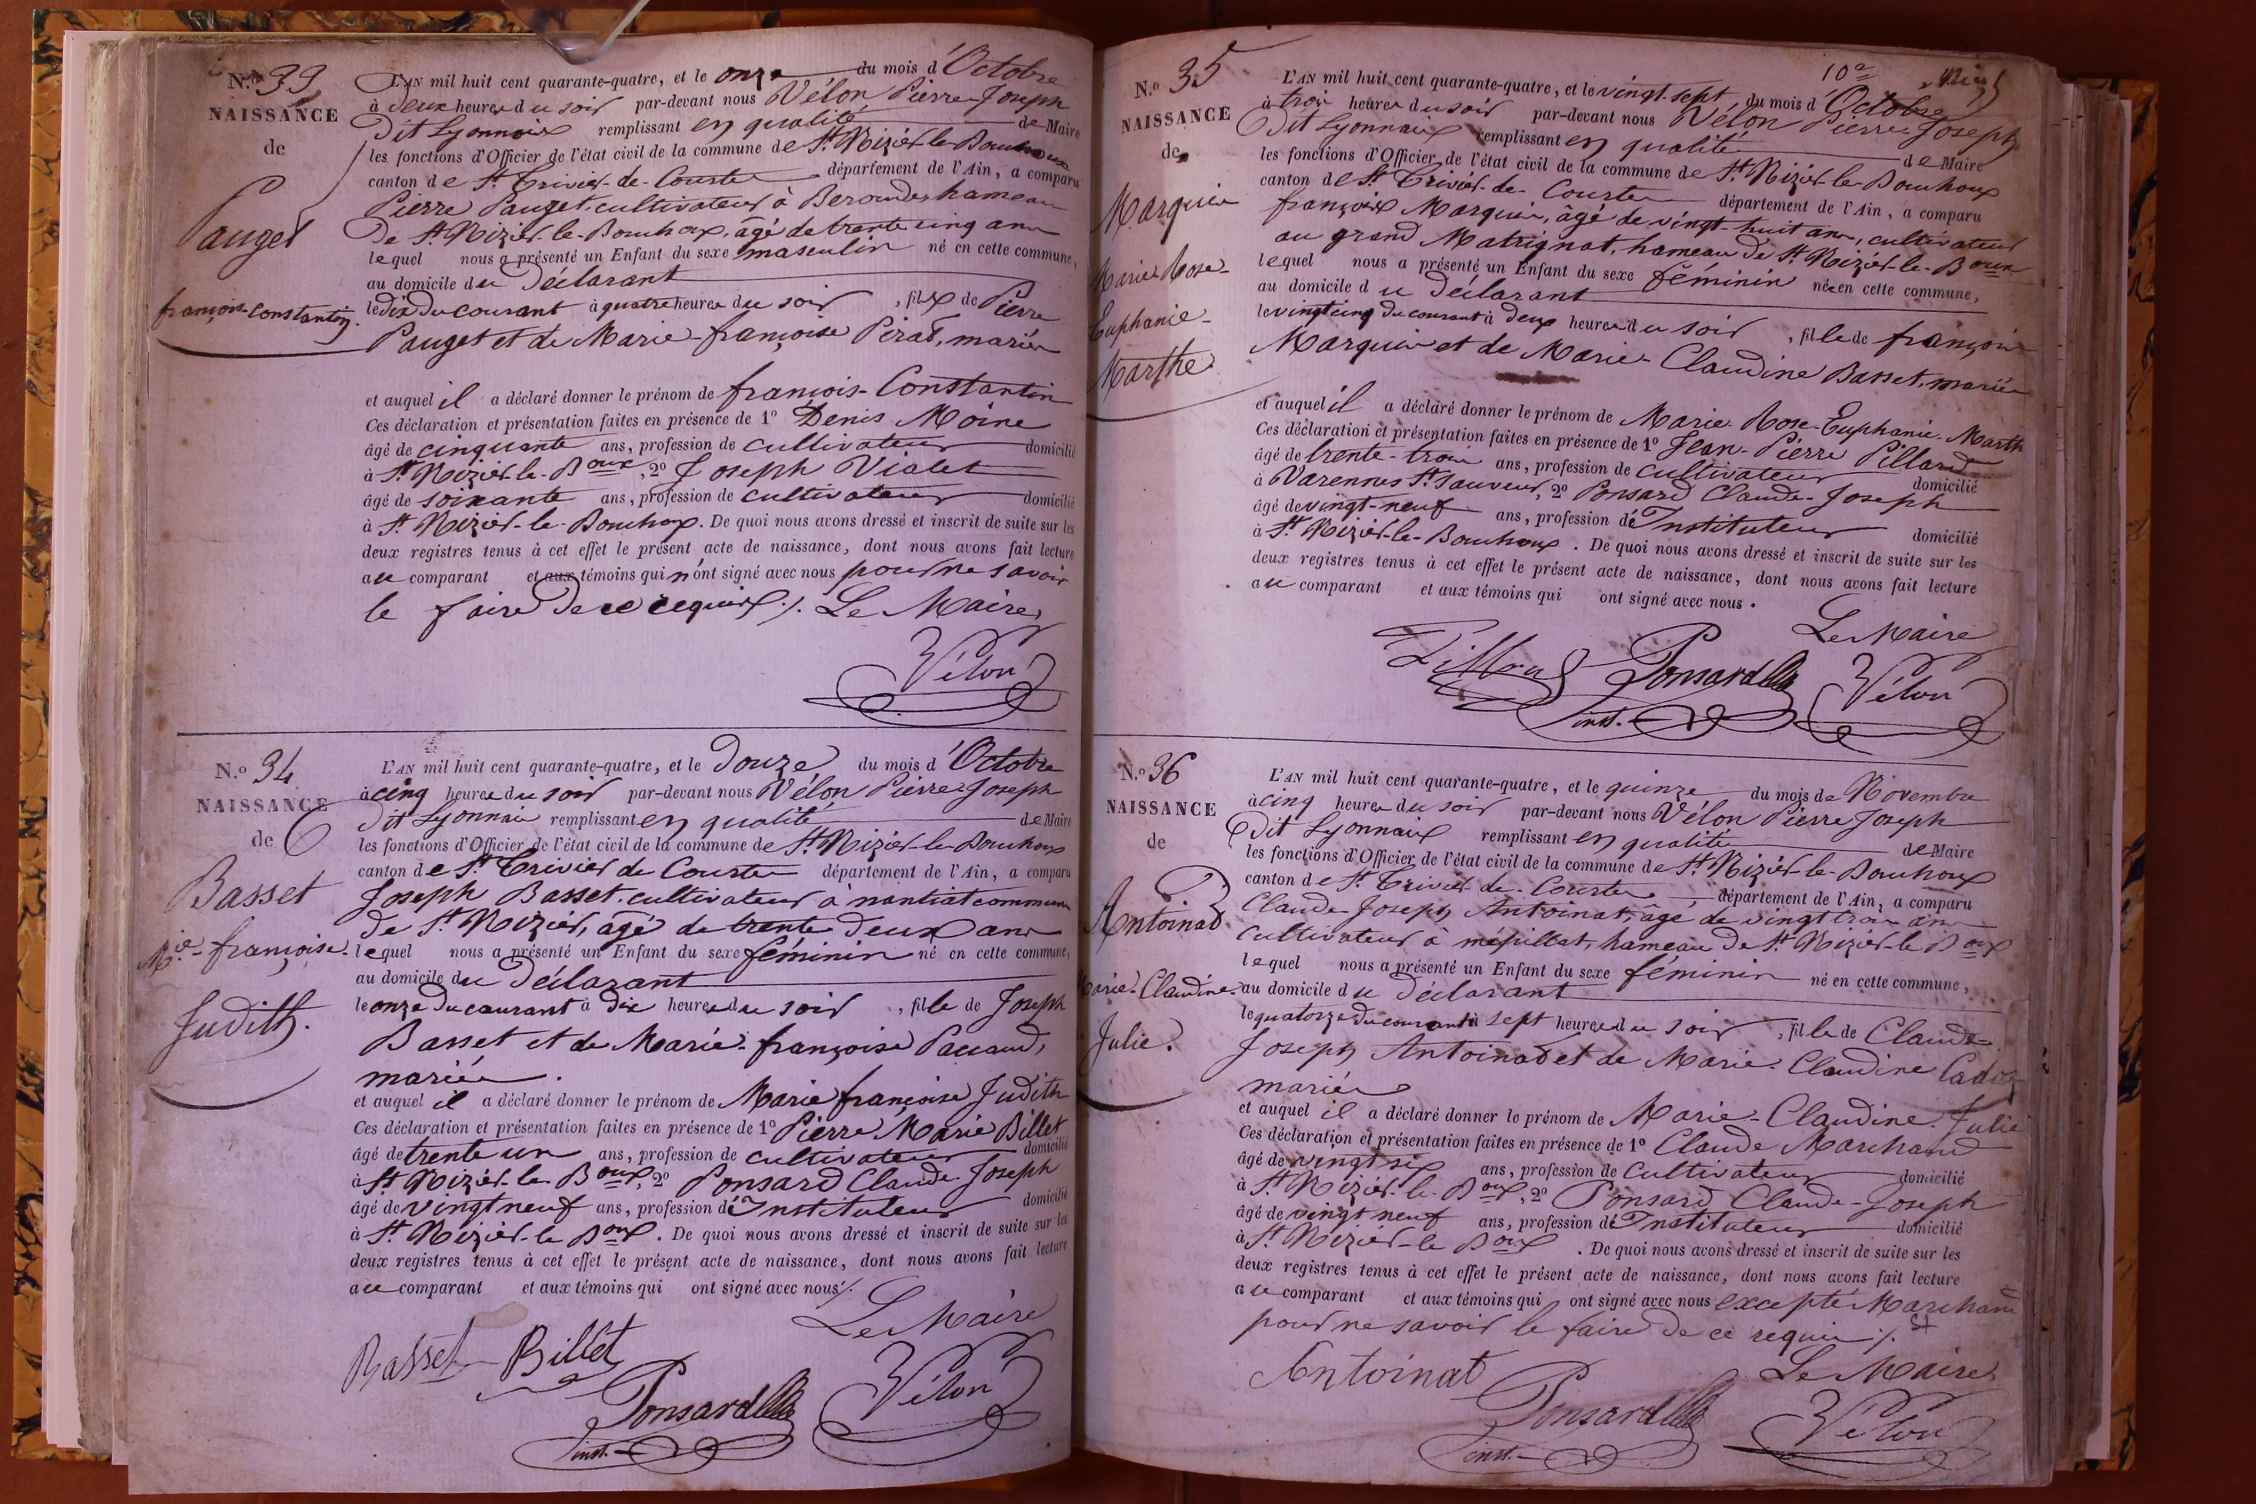 N.o 33
NAISSANCE
de
Pauget
françois-constantin.
L'AN mil huit cent quarante-quatre, et le onze du mois d'Octobre
à deux heures du soir par-devant nous Vélon Pierre Joseph
dit Lyonnais remplissant en qualité de Maire
les fonctions d'Officier de l'état civil de la commune de St. Nizier-le-Bouchoux
canton de St. Trivier-de-Courtes département de l'Ain, a comparu
Pierre Pauget, cultivateur à hameau
de St. Nizier-le-Bouchoux, âgé de trente cinq ans
lequel nous a présenté un Enfant du sexe masculin né en cette commune,
au domicile du Déclarant
le dix du courant à quatre heures du soir, fils de Pierre
Pauget et de Marie-françoise Pirat, mariés
et auquel il a déclaré donner le prénom de françois-Constantin
Ces déclaration et présentation faites en présence de 1o Denis Moine
âgé de cinquante ans, profession de cultivateur domicilié
à St. Nizier-le-Boux, 2o Joseph Vialet
âgé de soixante ans, profession de cultivateur domicilié
à St. Nizier-le-Bouchoux. De quoi nous avons dressé et inscrit de suite sur les
deux registres tenus à cet effet le présent acte de naissance, dont nous avons fait lecture
au comparant et aux témoins qui n'ont signé avec nous pour ne savoir
le faire de ce requis ./. Le Maire
Vélon
N.o 34
NAISSANCE
de
Basset
Mie-françoise-
Judith.
L'AN mil huit cent quarante-quatre, et le Douze du mois d'Octobre
à cinq heures du soir par-devant nous Vélon Pierre Joseph
dit Lyonnais remplissant en qualité de Maire
les fonctions d'Officier de l'état civil de la commune de St. Nizier-le-Bouchoux
canton de St. Trivier de Courtes département de l'Ain, a comparu
Joseph Basset, cultivateur à nantiat commune
de St. Nizier, âgé de trente deux ans
lequel nous a présenté un Enfant du sexe féminin né en cette commune,
au domicile du Déclarant
le onze du courant à dix heures du soir, fille de Joseph
Basset et de Marie-françoise Pacaud,
mariés.
et auquel il a déclaré donner le prénom de Marie françoise Judith
Ces déclaration et présentation faites en présence de 1o Pierre Marie Billet
âgé de trente un ans, profession de cultivateur domicilié
à St. Nizier-le-Boux, 2o Ponsard Claude-Joseph
âgé de vingt neuf ans, profession d'Instituteur domicilié
à St. Nizier-le Boux. De quoi nous avons dressé et inscrit de suite sur les
deux registres tenus à cet effet le présent acte de naissance, dont nous avons fait lecture
au comparant et aux témoins qui ont signé avec nous ./.
Le Maire
Basset Billet
Ponsard Vélon
inst.
10e
N.o 35
NAISSANCE
de
Marquis
Marie-Rose-
Euphanie-
Marthe
L'AN mil huit cent quarante-quatre, et le vingt-sept du mois d'Octobre
à trois heures du soir par-devant nous Vélon Pierre Joseph
dit Lyonnais remplissant en qualité de Maire
les fonctions d'Officier de l'état civil de la commune de St. Nizier-le-Bouchoux
canton de St. Trivier-de-Courtes département de l'Ain, a comparu
françois Marquis, âgé de vingt-huit ans, cultivateur
au grand Matrignat, hameau de St. Nizier-le-Boux
lequel nous a présenté un Enfant du sexe féminin née en cette commune,
au domicile du Déclarant
le vingt cinq du courant à deux heures du soir, fille de françois
Marquis et de Marie-Claudine Basset, mariés
et auquel il a déclaré donner le prénom de Marie-Rose-Euphanie-Marth
Ces déclaration et présentation faites en présence de 1o Jean-Pierre Pillard
âgé de trente-trois ans, profession de cultivateur domicilié
à Varennes St. Sauveur, 2o Ponsard Claude-Joseph
âgé de vingt-neuf ans, profession d'Instituteur domicilié
à St. Nizier-le-Bouchoux. De quoi nous avons dressé et inscrit de suite sur les
deux registres tenus à cet effet le présent acte de naissance, dont nous avons fait lecture
au comparant et aux témoins qui ont signé avec nous.
Le Maire
Pillard Ponsard Vélon
inst.
N.o 36
NAISSANCE
de
Antoinat
Marie-Claudine-
Julie.
L'AN mil huit cent quarante-quatre, et le quinze du mois de Novembre
à cinq heures du soir par-devant nous Vélon Pierre Joseph
dit Lyonnais remplissant en qualité de Maire
les fonctions d'Officier de l'état civil de la commune de St. Nizier-le-Bouchoux
canton de St. Trivier-de-Courtes département de l'Ain, a comparu
Claude-Joseph Antoinat, âgé de vingt trois ans
cultivateur à mépillat, hameau de St. Nizier-le-Boux
lequel nous a présenté un Enfant du sexe féminin né en cette commune,
au domicile du Déclarant
le quatorze du courant à sept heures du soir, fille de Claude-
Joseph Antoinat et de Marie-Claudine Cadoz
mariés
et auquel il a déclaré donner le prénom de Marie-Claudine-Julie
Ces déclaration et présentation faites en présence de 1o Claude Marchand
âgé de vingt six ans, profession de cultivateur domicilié
à St. Nizier-le-Boux, 2o Ponsard Claude-Joseph
âgé de vingt neuf ans, profession d'Instituteur domicilié
à St. Nizier-le Boux. De quoi nous avons dressé et inscrit de suite sur les
deux registres tenus à cet effet le présent acte de naissance, dont nous avons fait lecture
au comparant et aux témoins qui ont signé avec nous excepté Marchand
pour ne savoir le faire de ce requis ./.
Le Maire
Antoinat Ponsard Vélon
inst.